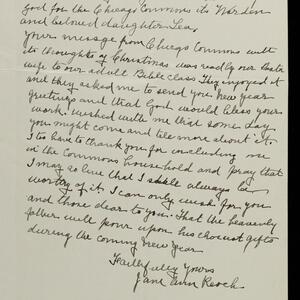 God for the Chicago Commons its Warden
and beloved daughter Lea,
Your message from Chicago Commons with
its thoughts of Christmas was read by our
wife to our adult Bible class. They enjoyed it
and they asked me to send you new year
greetings and that God would bless your
work. wished with me that some day
you might come and tell more about it.
I too have to thank you for including me
in the Commons household and pray that
I may so live that I shall always be
worthy of it. I can only wish for you
and those dear to you. That the heavenly
father will pour upon his choicest gifts
during the coming new year
Faithfully yours
Jane Ann